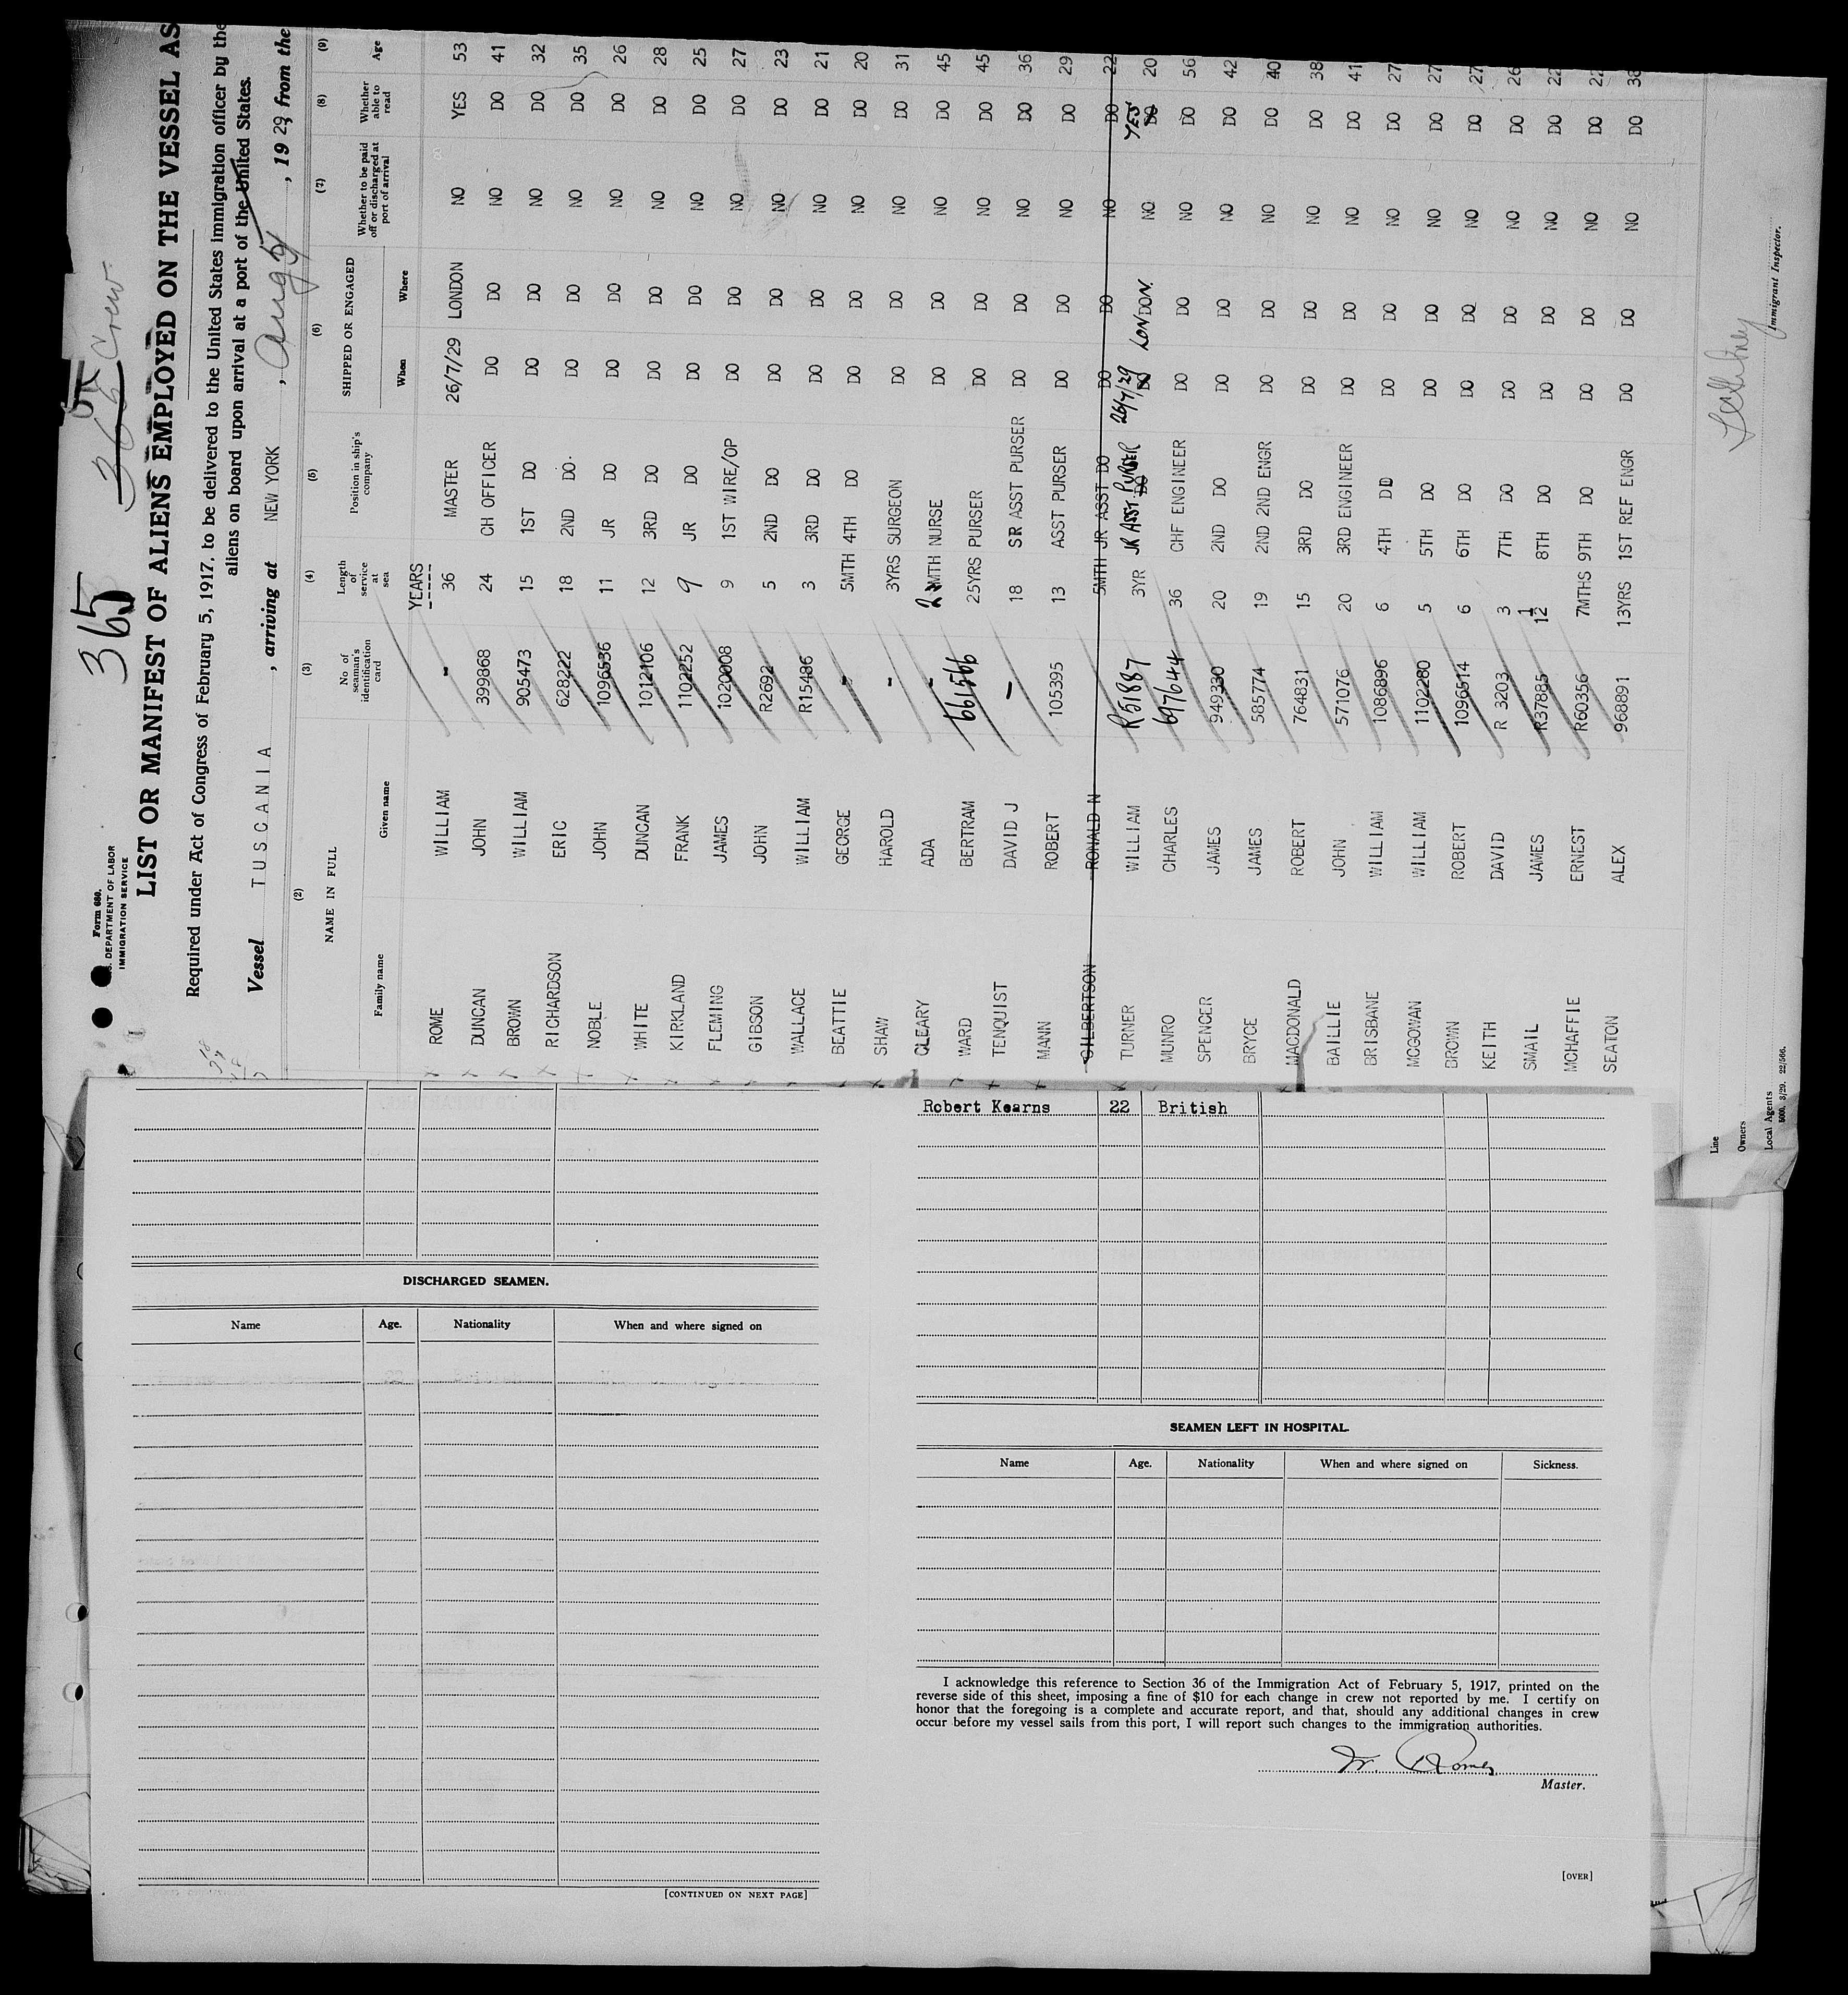 365
365 Crew
Form 680.
U.S. DEPARTMENT OF LABOR
IMMIGRATION SERVICE
LIST OR MANIFEST OF ALIENS EMPLOYED ON THE VESSEL AS
Required under Act of Congress of February 5, 1917, to be delivered to the United States immigration officer by the
aliens on board upon arrival at a port of the United States.
Vessel TUSCANIA, arriving at NEW YORK, Aug 5, 1929, from the
(2) (3) (4) (5) (6) (7) (8) (9)
NAME IN FULL No of seaman's identification card Length of service at sea Position in ship's company SHIPPED OR ENGAGED Whether to be paid off or discharged at port of arrival Whether able to read Age
Family name Given name When Where
YEARS
ROME WILLIAM - 36 MASTER 26/7/29 LONDON NO YES 53
DUNCAN JOHN 399868 24 CH OFFICER DO DO NO DO 41
BROWN WILLIAM 905473 15 1ST DO DO DO NO DO 32
RICHARDSON ERIC 628222 18 2ND DO. DO DO NO DO 35
NOBLE JOHN 1096536 11 JR DO DO DO NO DO 26
WHITE DUNCAN 1012106 12 3RD DO DO DO NO DO 28
KIRKLAND FRANK 1102252 9 JR DO DO DO NO DO 25
FLEMING JAMES 1020008 9 1ST WIRE/OP DO DO NO DO 27
GIBSON JOHN R2692 5 2ND DO DO DO NO DO 23
WALLACE WILLIAM R15486 3 3RD DO DO DO NO DO 21
BEATTIE GEORGE - 5MTH 4TH DO DO DO NO DO 20
SHAW HAROLD - 3YRS SURGEON DO DO NO DO 31
CLEARY ADA - 2 MTH NURSE DO DO NO DO 45
WARD BERTRAM 661566 25YRS PURSER DO DO NO DO 45
TENQUIST DAVID J - 18 SR ASST PURSER DO DO NO DO 36
MANN ROBERT 105395 13 ASST PURSER DO DO NO DO 29
GILBERTSON RONALD N 5MTH JR ASST DO DO DO NO DO 22
TURNER WILLIAM R51887 3YR JR ASST PURSER 26/7/29 LONDON. NO YES 20
MUNRO CHARLES 697644 36 CHF ENGINEER DO DO NO DO 56
SPENCER JAMES 949330 20 2ND DO DO DO NO DO 42
BRYCE JAMES 585774 19 2ND 2ND ENGR DO DO NO DO 40
MACDONALD ROBERT 764831 15 3RD DO DO DO NO DO 38
BAILLIE JOHN 571076 20 3RD ENGINEER DO DO NO DO 41
BRISBANE WILLIAM 1086896 6 4TH DO DO DO NO DO 27
MCGOWAN WILLIAM 1102280 5 5TH DO DO DO NO DO 27
BROWN ROBERT 1096514 6 6TH DO DO DO NO DO 27
KEITH DAVID R 3203 3 7TH DO DO DO NO DO 26
SMAIL JAMES R37885 1 12 8TH DO DO DO NO DO 22
MCHAFFIE ERNEST R60356 7MTHS 9TH DO DO DO NO DO 22
SEATON ALEX 968891 13YRS 1ST REF ENGR DO DO NO DO 38
Immigrant Inspector.
Line
Owners
Local Agents
5000. 3/29. 22/566.
DISCHARGED SEAMEN.
Name Age. Nationality When and where signed on
[CONTINUED ON NEXT PAGE]
Robert Kearns 22 British
SEAMEN LEFT IN HOSPITAL.
Name Age. Nationality When and where signed on Sickness.
I acknowledge this reference to Section 36 of the Immigration Act of February 5, 1917, printed on the
reverse side of this sheet, imposing a fine of $10 for each change in crew not reported by me. I certify on
honor that the foregoing is a complete and accurate report, and that, should any additional changes in crew
occur before my vessel sails from this port, I will report such changes to the immigration authorities.
W. Rome
Master.
[OVER]